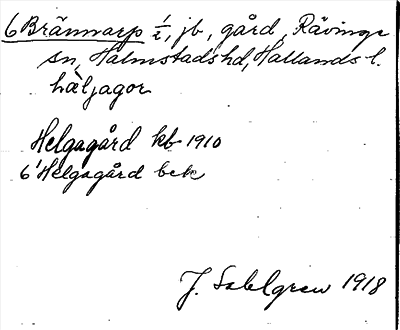 6 Brännarp 1/2, jb, gård, Rävinge
sn, Halmstads hd, Hallands l.
hàljagor
Helgagård kb 1910
6' Helgagård bek
J. Sahlgren 1918